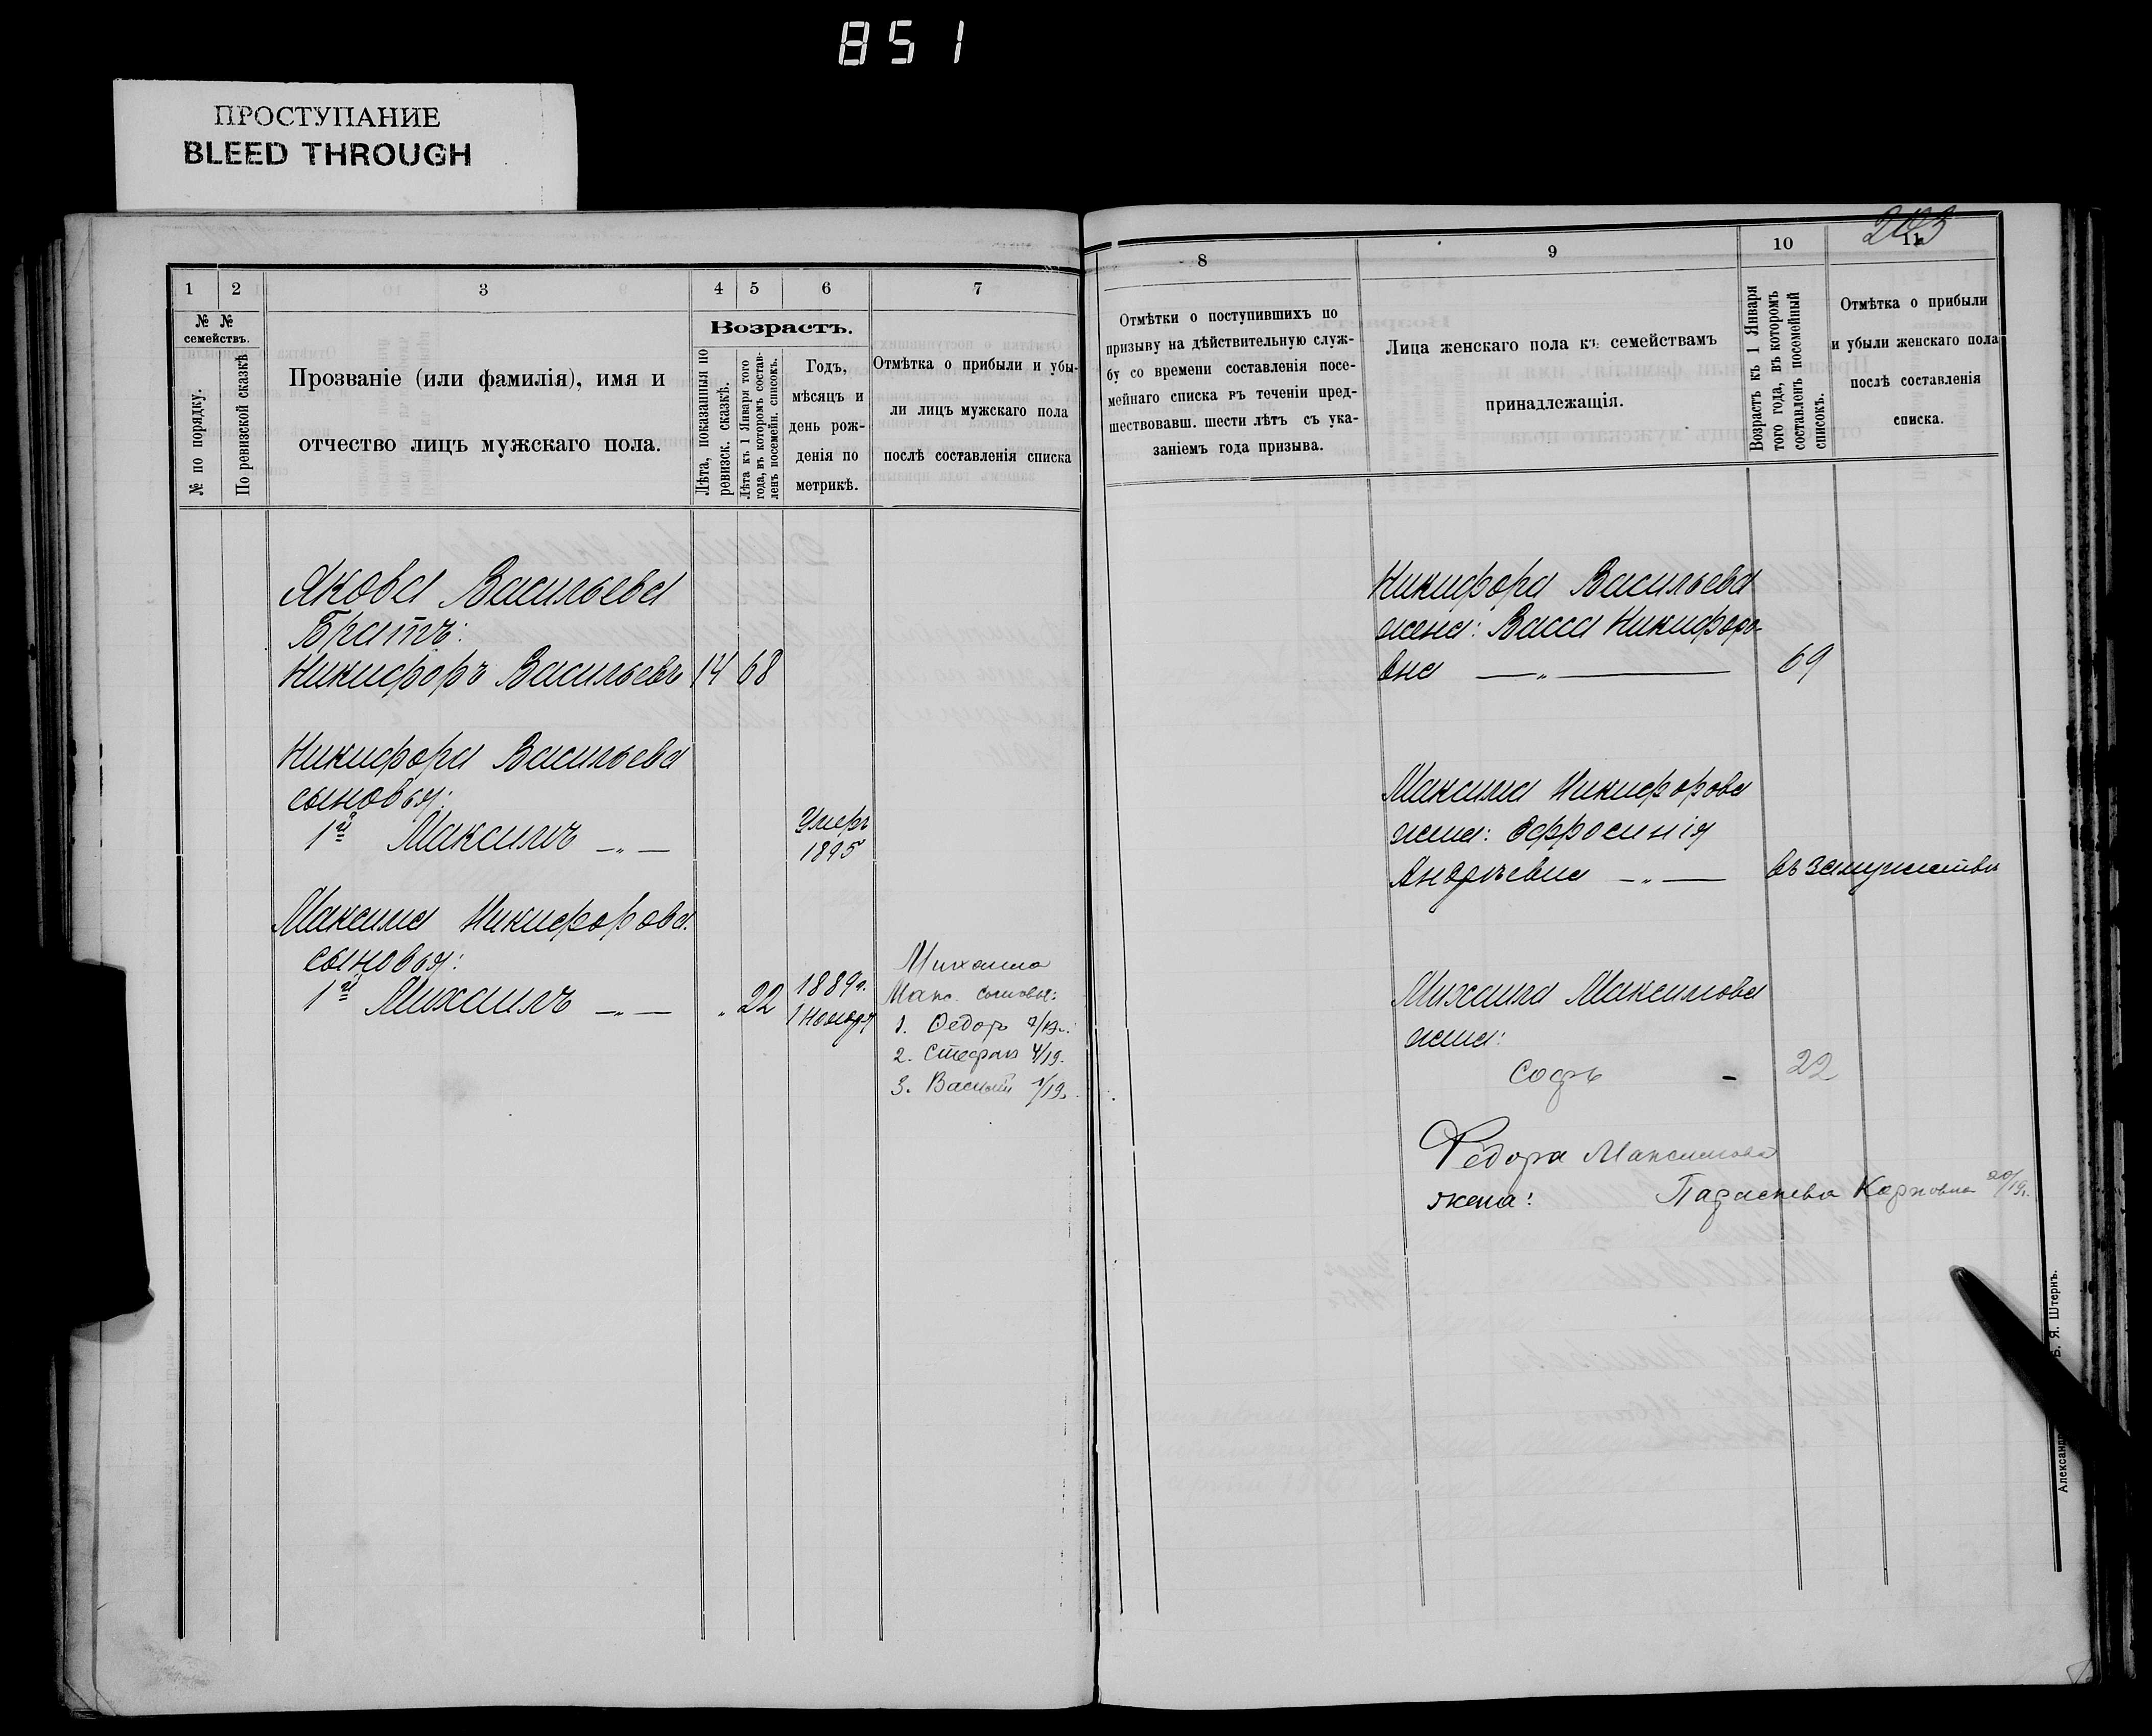 851
ПРОСТУПАНИЕ
BLEED THROUGH
1 2 3 4 5 6 7
№ №
семействъ.
№ по порядку.
По ревизской сказкѣ
Прозваніе (или фамилія), имя и
отчество лицъ мужскаго пола.
Возрастъ.
Лѣта, показанныя по
ревизск. сказкѣ.
Лѣта къ 1 Января того
года, въ которомъ состав-
ленъ посемейн. списокъ.
Годъ,
мѣсяцъ и
день рож-
денія по
метрикѣ.
Отмѣтка о прибыли и убы-
ли лицъ мужскаго пола
послѣ составленія списка
Якова Васильева
Братъ:
Никифоръ Васильевъ 14 68
Никифора Васильева
сыновья:
1й Максимъ —„— Умеръ
1895
Максима Никифорова
сыновья:
1й Михаилъ —„— „ 22 1889г.
1 Ноября
Михаила
Макс. сыновья:
1. Федоръ
2. Стефанъ 4/19.
3. Василий 1/19.
8 9 10 11
Отмѣтки о поступившихъ по
призыву на дѣйствительную служ-
бу со времени составленія посе-
мейнаго списка въ теченіи пред-
шествовавш. шести лѣтъ съ ука-
заніемъ года призыва.
Лица женскаго пола къ семействамъ
принадлежащія.
Возрастъ къ 1 Января
того года, въ которомъ
составленъ посемейный
списокъ.
Отмѣтка о прибыли
и убыли женскаго пола
послѣ составленія
списка.
Никифора Васильева
жена: Васса Никифоро-
вна —„— 69
Максима Никифорова
жена: Ефросинія
Андреевна —„— въ замужствѣ
Михаила Максимова
жена:
Софья - 22
Федора Максимова
жена: Параскева Карповна 20/19г.
Б. Я. Штернъ.